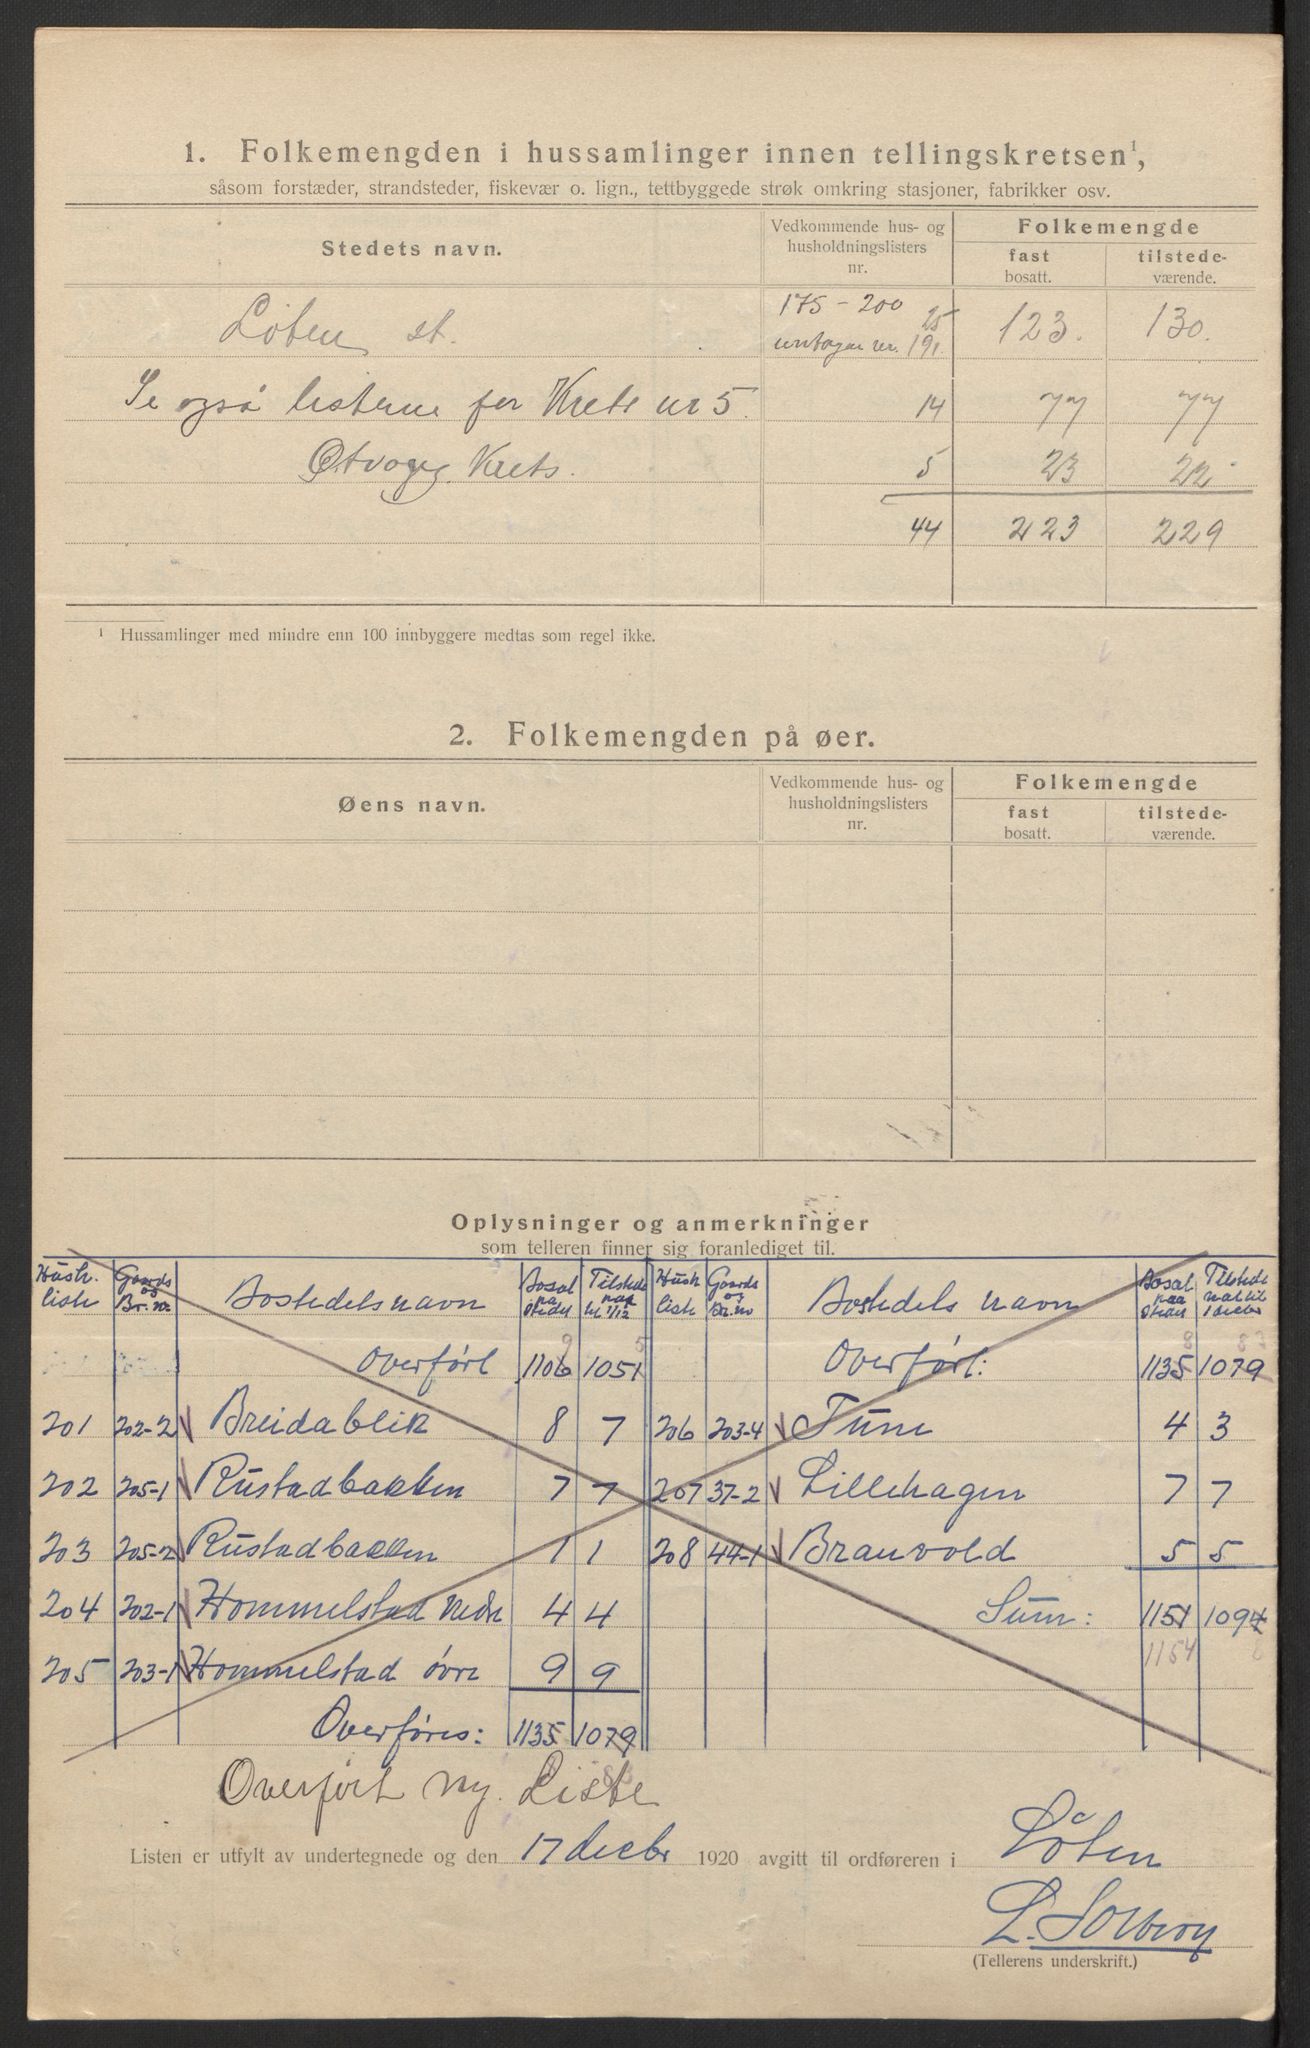 1. Folkemengden i hussamlinger innen tellingskretsen¹,
såsom forstæder, strandsteder, fiskevær o. lign., tettbyggede strøk omkring stasjoner, fabrikker osv.
Stedets navn. Vedkommende hus- og husholdningslisters nr. Folkemengde
fast bosatt. tilstede-værende.
Løten st. 175 - 200 25 untagen nr. 191. 123. 130.
Se også listerne for Krets nr 5. 14 77 77
Krets. 5 23 22
44 223 229
¹ Hussamlinger med mindre enn 100 innbyggere medtas som regel ikke.
2. Folkemengden på øer.
Øens navn. Vedkommende hus- og husholdningslisters nr. Folkemengde
fast bosatt. tilstede-værende.
Oplysninger og anmerkninger
som telleren finner sig foranlediget til.
Hush. liste Gaards og Br. nr Bostedets navn Bosat paa stedet Tilstede Hush liste Gaards og Br. no Bostedets navn Bosat paa stedet Tilstede
Overført 1106 9 1051 5 Overført: 1135 8 1079 83
201 202-2 Breidablik 8 7 206 203-4 Tune 4 3
202 205-1 Rustadbakken 7 7 207 37-2 Lillehagen 7 7
203 205-2 Rustadbakken 1 1 208 44-1 Branvold 5 5
204 202-1 Hommelstad nedr 4 4 Sum: 1151 1094
205 203-1 Hommelstad øvre 9 9 1154 8
Overføres: 1135 1079
8 83
Overført ny. Liste
Listen er utfylt av undertegnede og den 17 decbr 1920 avgitt til ordføreren i Løten
L. Solberg
(Tellerens underskrift.)